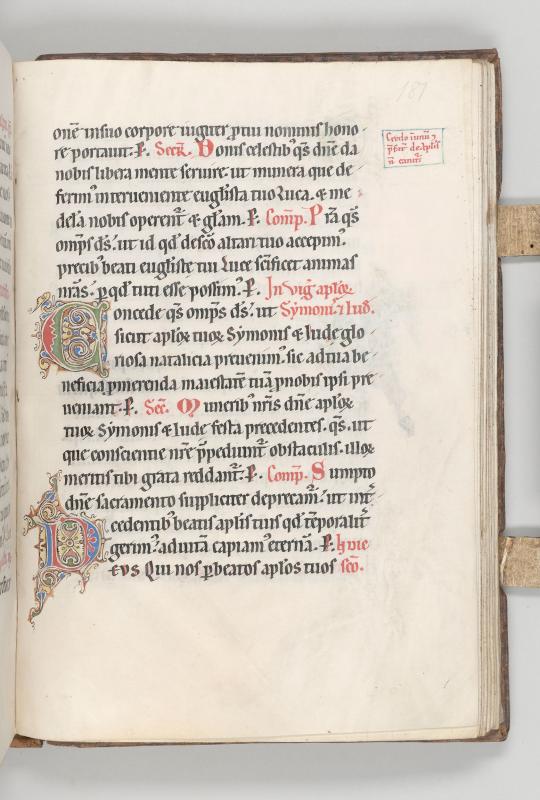 187
onē insuo corpore iugiter ꝓtui nominis hono
re portauit. ꝑ. Secr̄. Donis celestib' q̄s dn̄e da
nobis libera mente seruire. ut munera que de
ferim' interueniente eugl̄ista tuo luca. & me
delā nobis operent̄ & gl̄am. ꝑ. Comp̄. Pr̄a q̄s
omps ds̄. ut id qd' de sc̄o altari tuo accepim'.
precib' beati eugl̄iste tui luce sc̄ificet animas
nr̄as. ꝑ qd' tuti esse possim'. ꝑ. In vig̃. aplōꝝ
Concede q̄s omps ds̄. ut Sẏmonis ⁊ Iud̄.
sicut aplōꝝ tuoꝝ Sẏmonis & Iude glo
riosa natalicia preuenim'. sic ad tua be
neficia ꝓmerenda maiestatē tuā ꝓnobis ipsi pre
ueniant. ꝑ. Sec̄. Munerib' nr̄is dn̄e aplōꝝ
tuoꝝ Sẏmonis & Iude festa precedentes. q̄s. ut
que conscientie nr̄e p̄pediunt̄ obstaculis. illoꝝ
meritis tibi grata reddant̄. ꝑ. Comp̄. Sumpto
dn̄e sacramento suppliciter deprecam̄. ut int̄
cedentib' beatis aplīs tuis qd' tēporalit̄
gerim' ad uitā capiam' eternā. ꝑ. h uie
DEVS Qui nos ꝑ beatos aplōs tuos sc̄o.
Credo
p̄fat̄ de aplīs